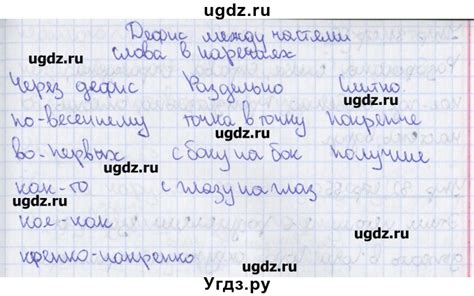 ugdz.ru
Дефис между частями
слова в наречиях
Через дефис Раздельно Слитно
по-весеннему точка в точку покрепче
во-первых с боку на бок получше
как-то с глазу на глаз
кое-как
крепко-накрепко
ugdz.ru ugdz.ru
ugdz.ru
ugdz.ru ugdz.ru
ugdz.ru
Угдз.ру